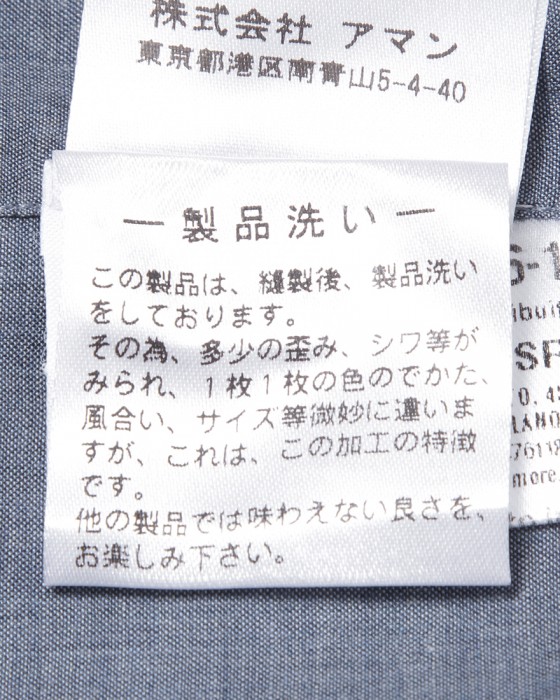 株式会社 アマン
東京都港区南青山5-4-40
― 製品洗い ―
この製品は、縫製後、製品洗い
をしております。
その為、多少の歪み、シワ等が
みられ、1枚1枚の色のでかた、
風合い、サイズ等微妙に違いま
すが、これは、この加工の特徴
です。
他の製品では味わえない良さを、
お楽しみ下さい。
more.